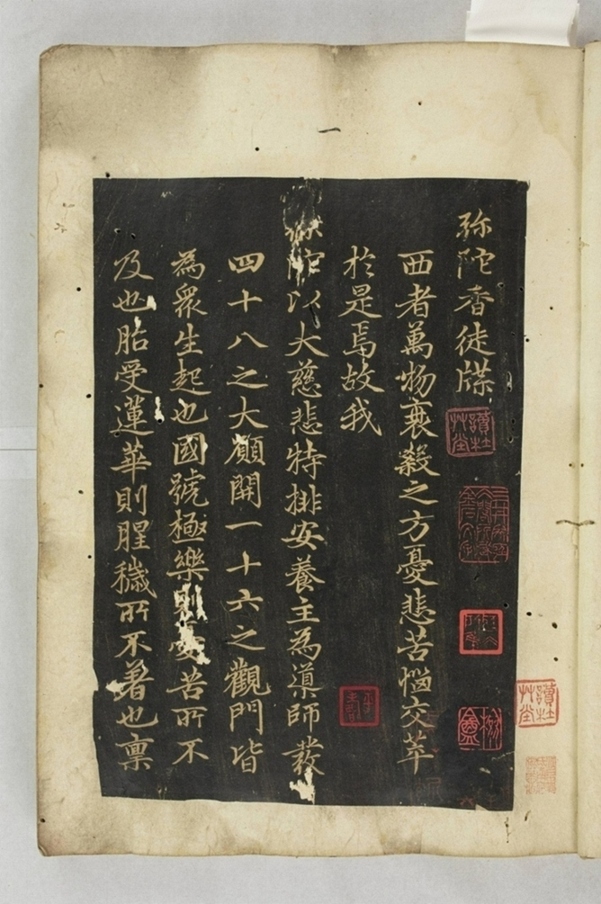 弥陀香徒牒
西者萬物衰殺之方憂悲苦惱交萃
於是焉故我
弥陀以大慈悲特排安養主為導師發
四十八之大願開一十六之觀門皆
為衆生起也國號極樂則憂苦所不
及也胎受蓮華則腥穢所不著也稟
讀杜艸堂
讀杜艸堂